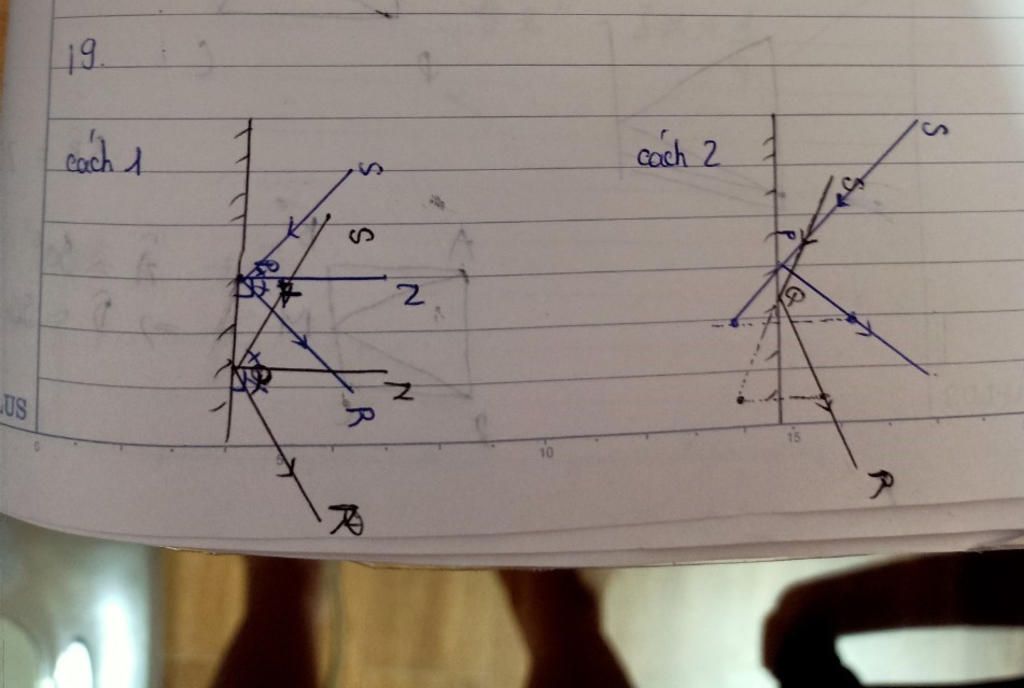 19.
cách 1
cách 2
S
S
N
N
R
S
S
P
Q
R
LUS
0
5
10
15